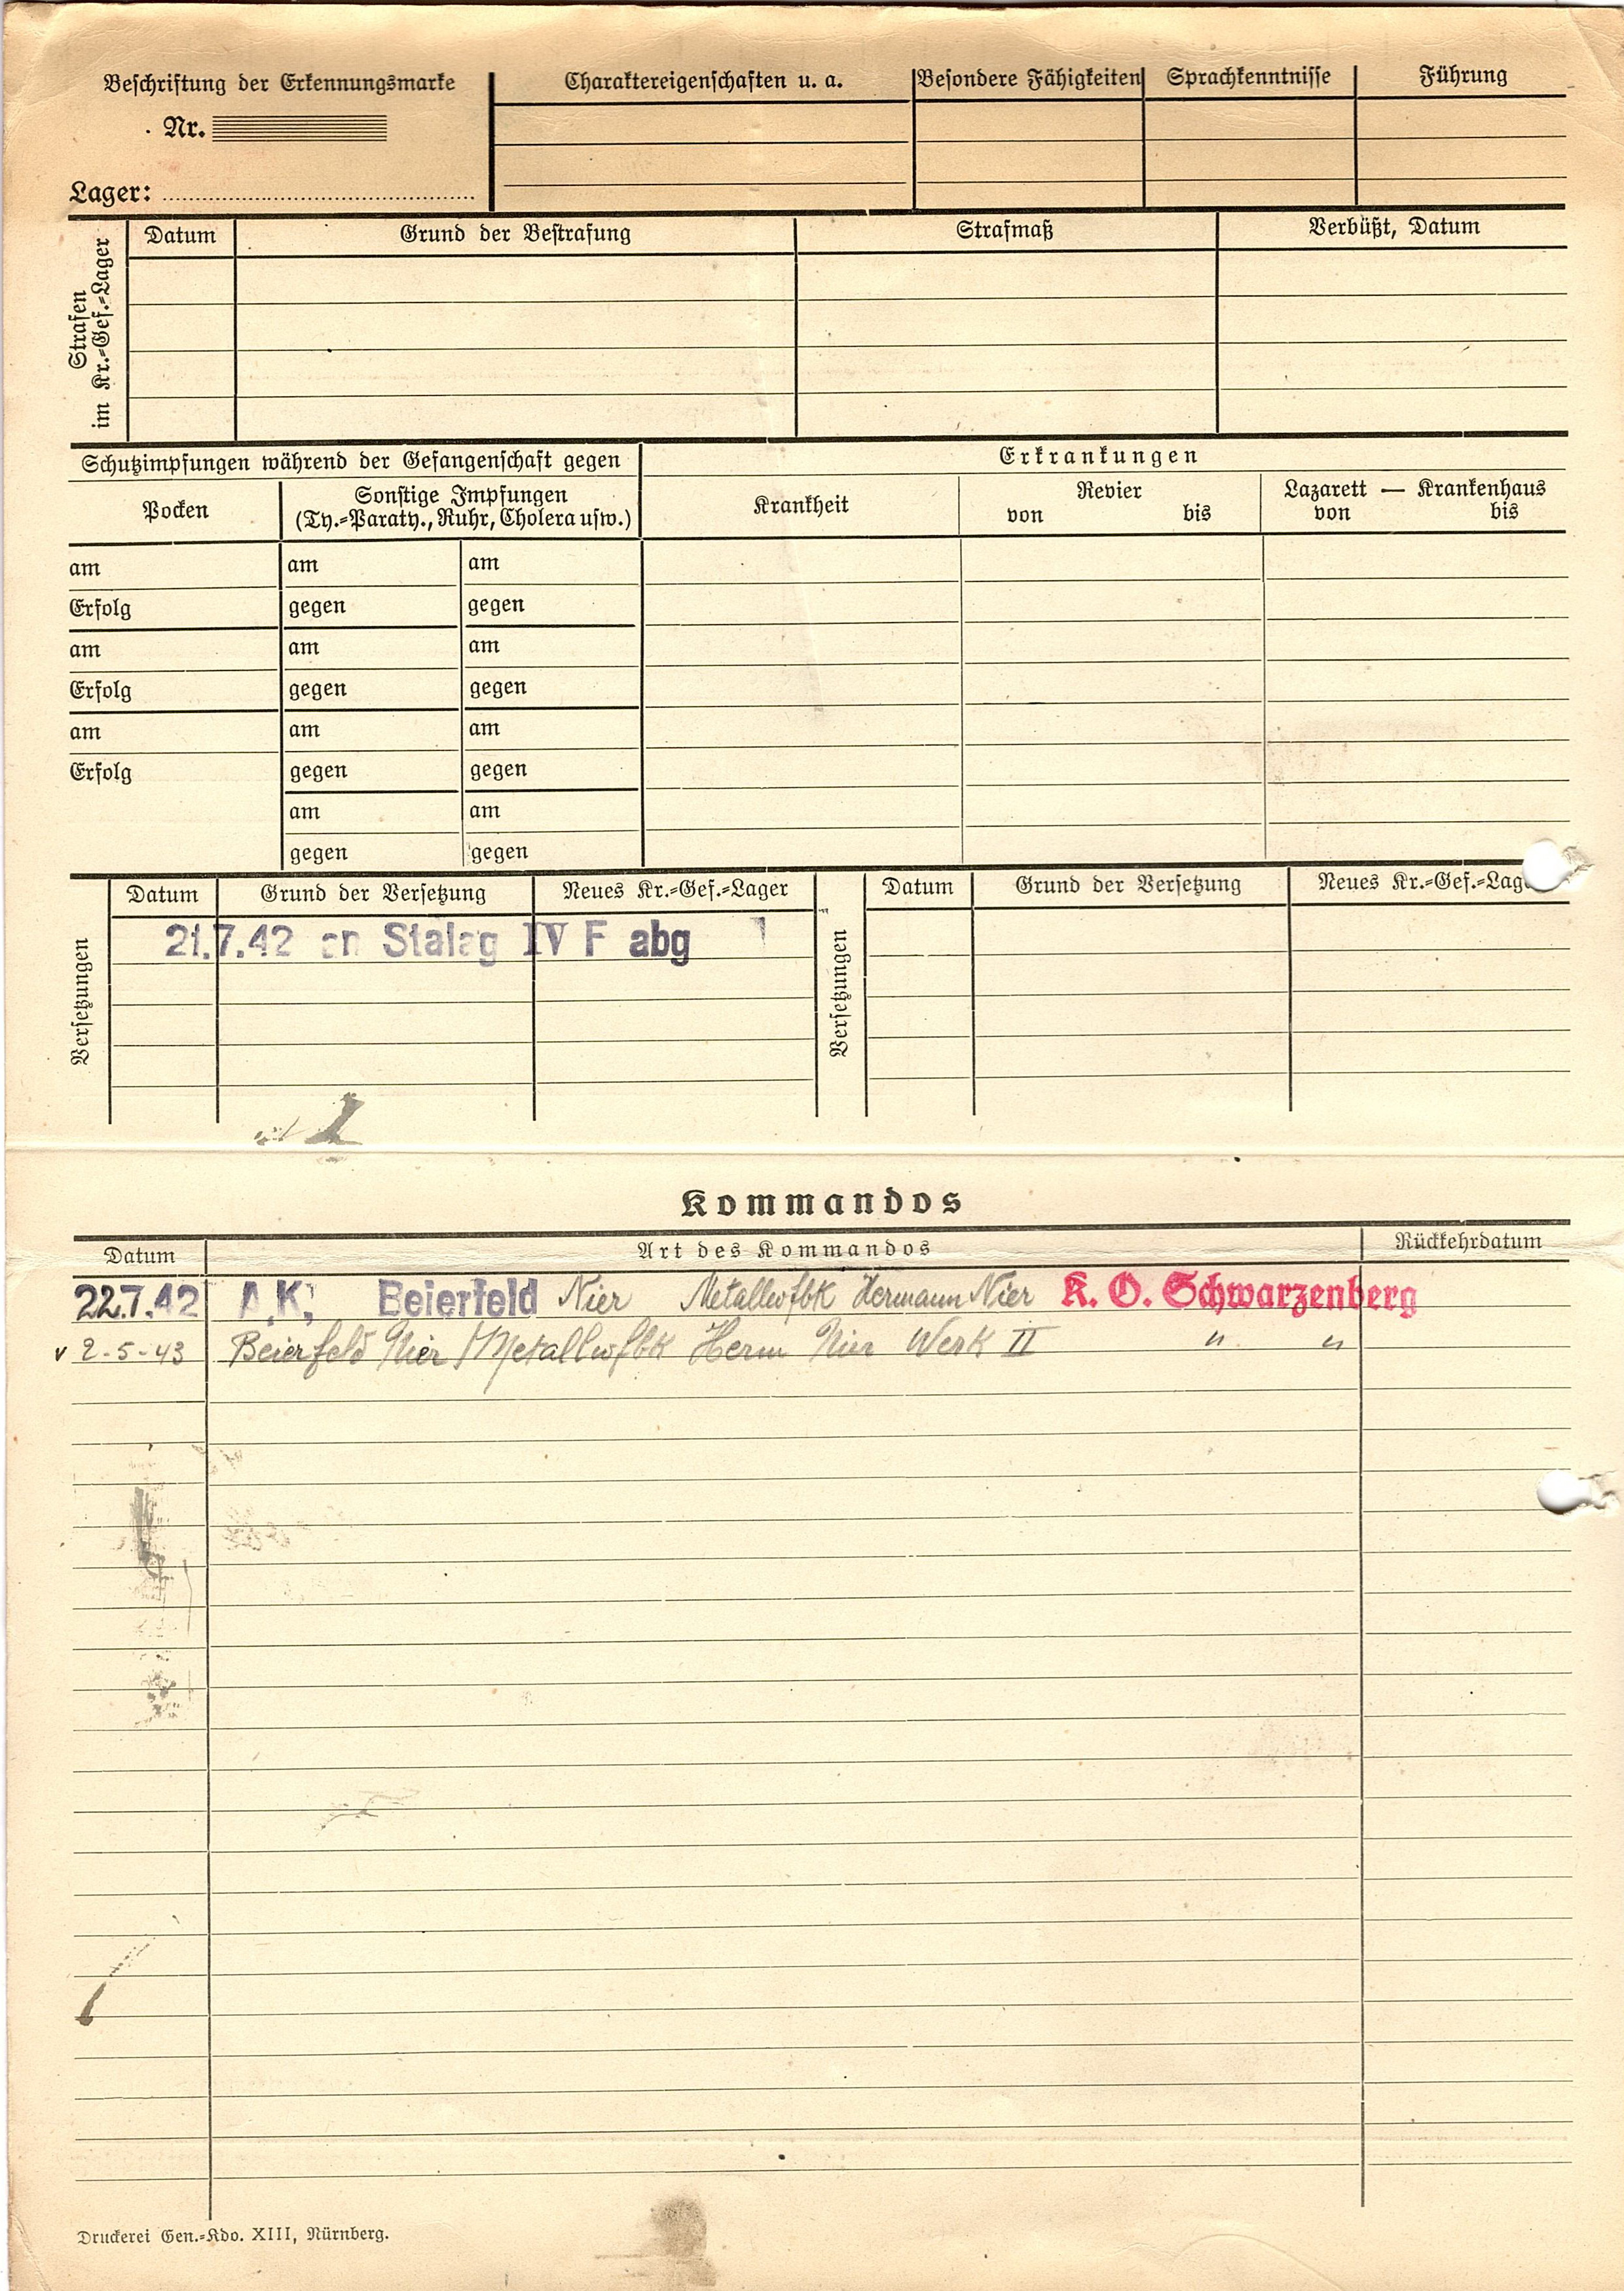 Beschriftung der Erkennungsmarke
Nr.
Lager:
Charaktereigenschaften u. a.
Besondere Fähigkeiten
Sprachkenntnisse
Führung
Strafen
im Kr.=Gef.=Lager
Datum
Grund der Bestrafung
Strafmaß
Verbüßt, Datum
Schutzimpfungen während der Gefangenschaft gegen
Erkrankungen
Pocken
Sonstige Impfungen
(Ty.=Paraty., Ruhr, Cholera usw.)
Krankheit
Revier
von bis
Lazarett — Krankenhaus
von bis
am am am
Erfolg gegen gegen
am am am
Erfolg gegen gegen
am am am
Erfolg gegen gegen
am am
gegen gegen
Versetzungen
Datum Grund der Versetzung Neues Kr.=Gef.=Lager
21.7.42 an Stalag IV F abg
Versetzungen
Datum Grund der Versetzung Neues Kr.=Gef.=Lag
Kommandos
Datum Art des Kommandos Rückkehrdatum
22.7.42 A.K. Beierfeld Nier Metallwfbk Hermann Nier K. O. Schwarzenberg
v 2-5-43 Beierfeld Nier Metallwfbk Herm Nier Werk II " "
Druckerei Gen.=Kdo. XIII, Nürnberg.